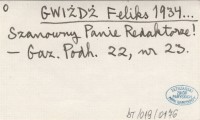 0
GWIŻDŻ Feliks 1934...
Szanowny Panie Redaktorze!
– Gaz. Podh. 22, nr 23.